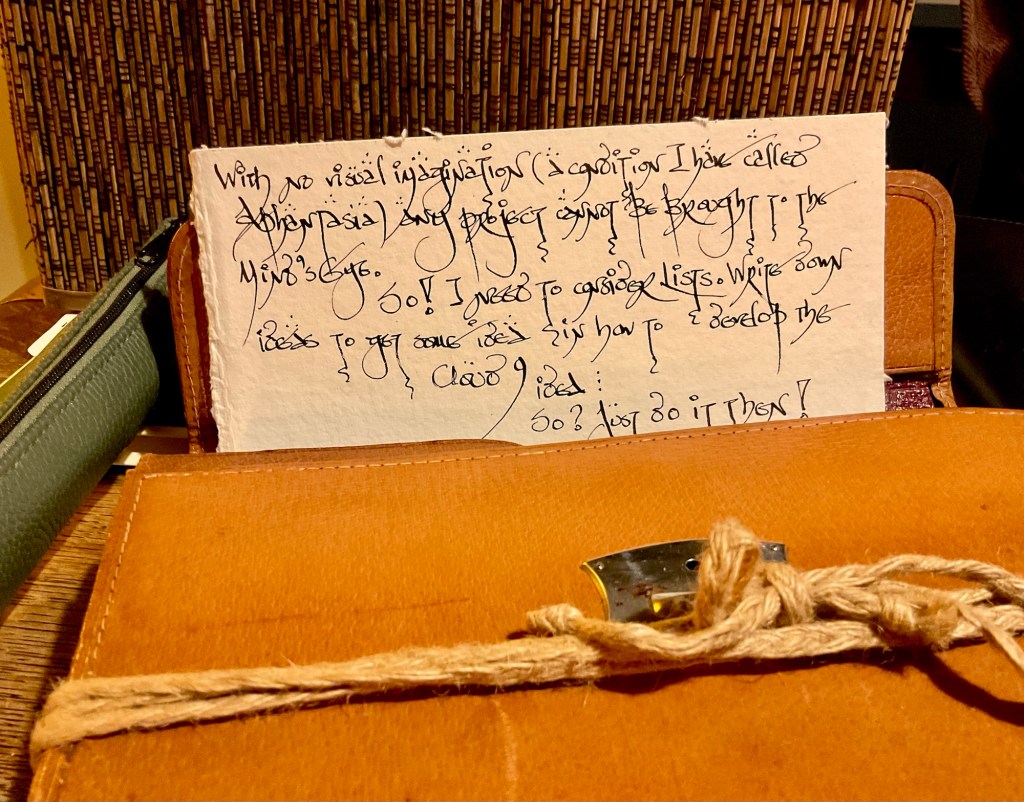 With no visual imagination (a condition I have called
Aphantasia) any project cannot be brought to the
Mind's Eye.
So! I need to consider Lists. Write down
ideas to get some idea in how to develop the
Cloud 9 idea :
So? Just do it then!